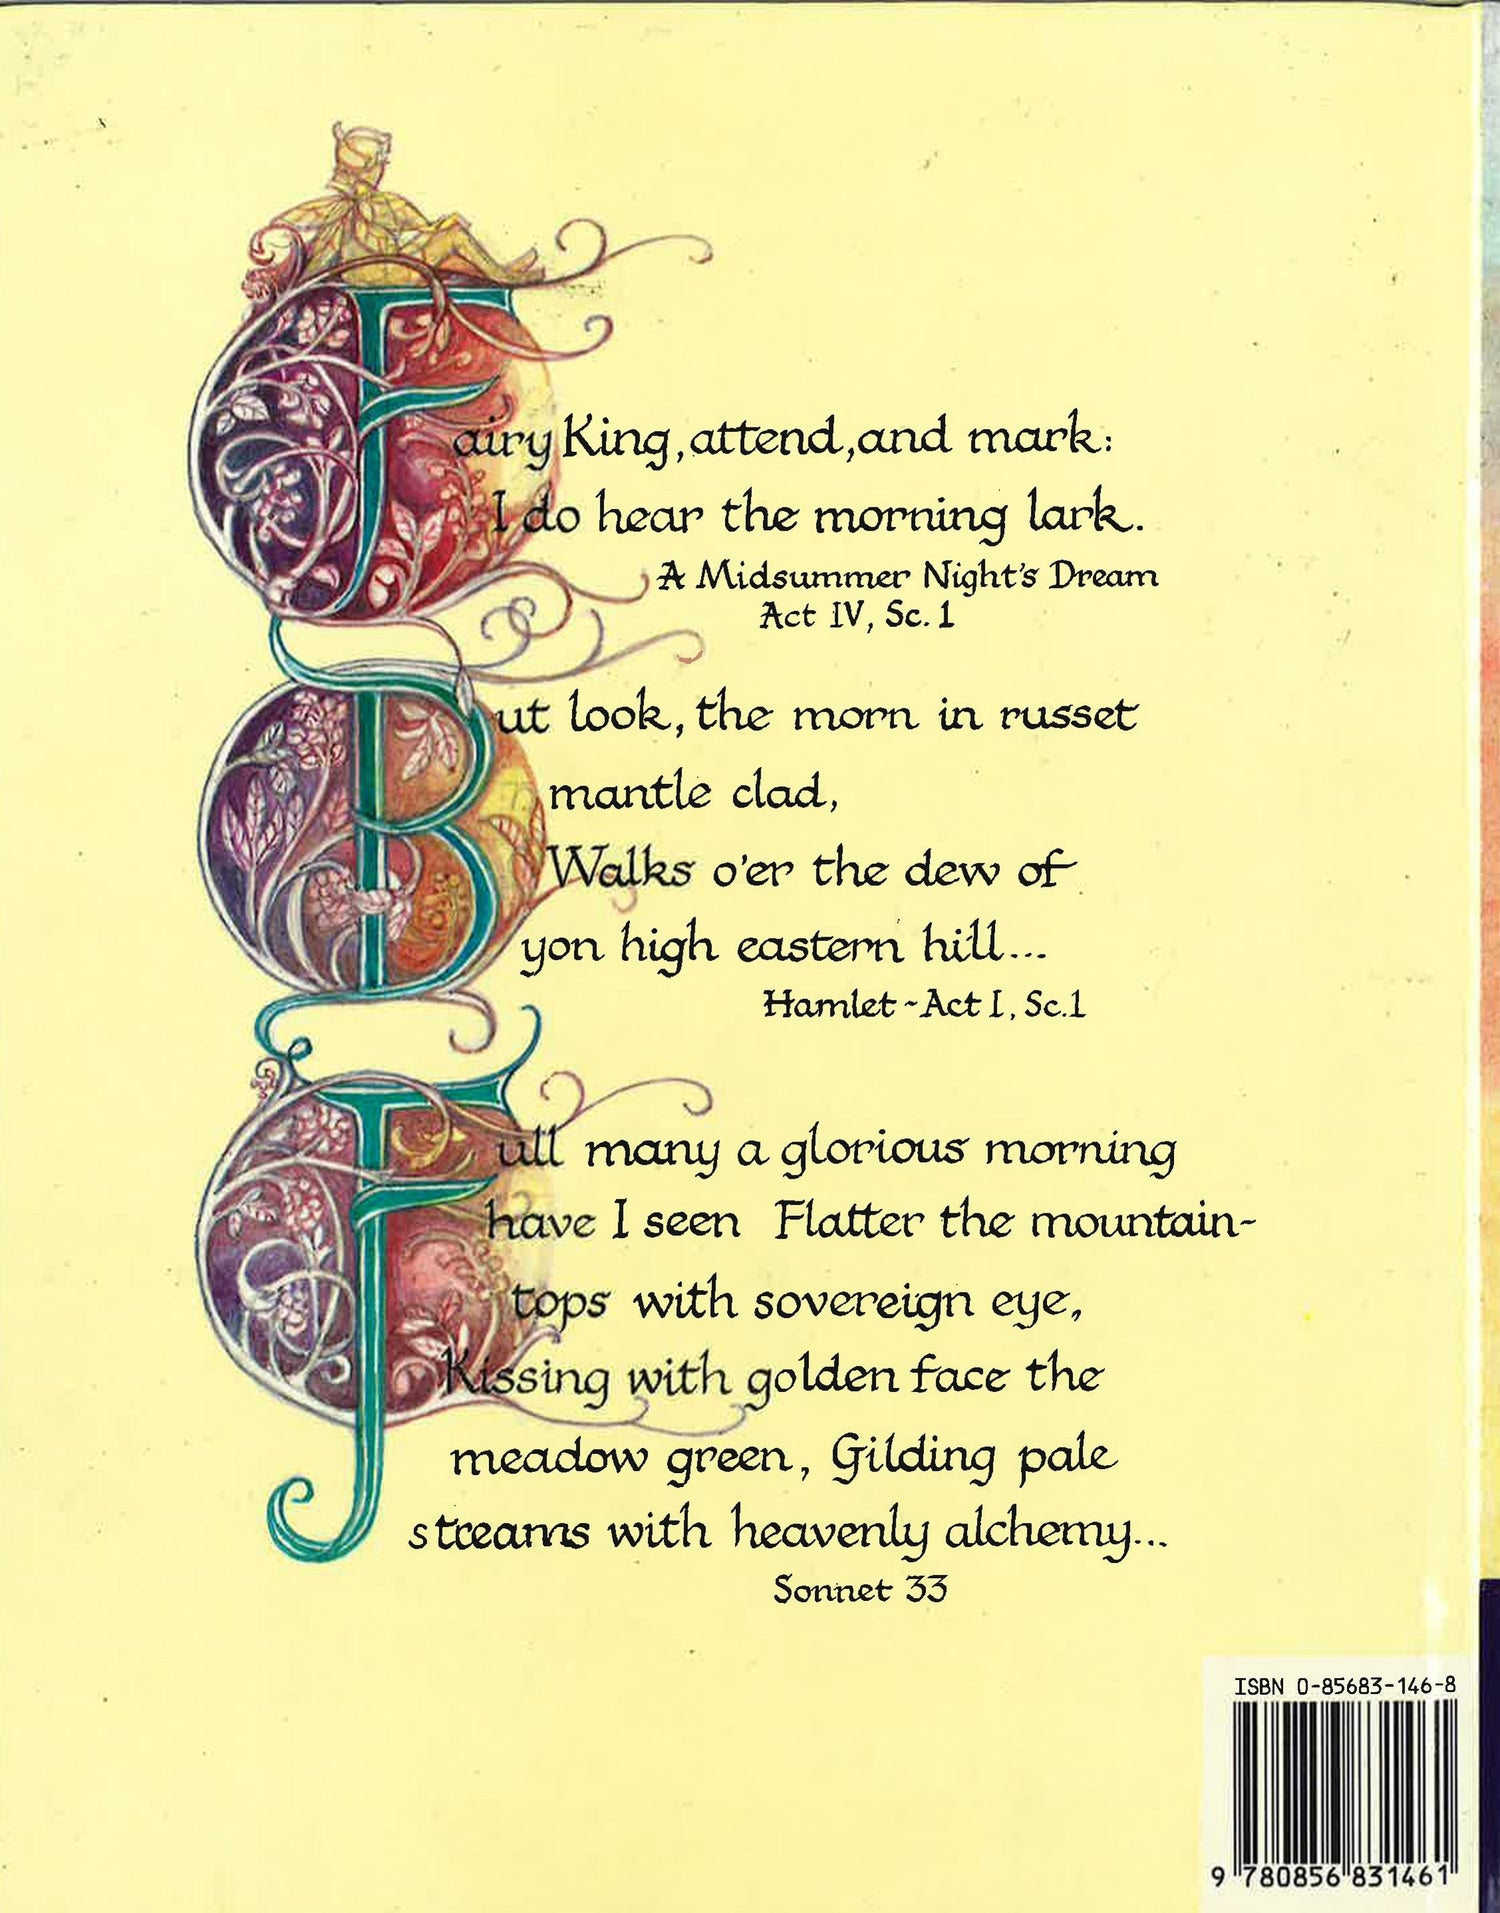 Fairy King, attend, and mark:
I do hear the morning lark.
A Midsummer Night's Dream
Act IV, Sc. 1
But look, the morn in russet
mantle clad,
Walks o'er the dew of
yon high eastern hill...
Hamlet ~ Act I, Sc. 1
Full many a glorious morning
have I seen Flatter the mountain-
tops with sovereign eye,
Kissing with golden face the
meadow green, Gilding pale
streams with heavenly alchemy...
Sonnet 33
ISBN 0-85683-146-8
9 780856 831461